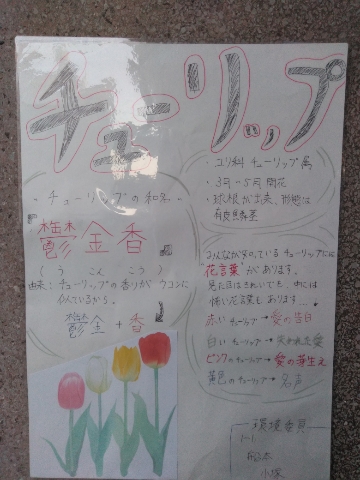 チューリップ
・チューリップの和名・
『鬱金香』
(うこんこう)
由来:チューリップの香りがウコンに
似ているから。
鬱金+香
・ユリ科 チューリップ属
・3月~5月 開花
・球根が出来、形態は
有皮鱗茎
みんなが知っているチューリップには
"花言葉"があります。
見た目はきれいでも、中には
怖い花言葉もあります…
赤いチューリップ→愛の告白
白いチューリップ→失われた愛
ピンクのチューリップ→愛の芽生え
黄色のチューリップ→名声
環境委員
1-1
小塚